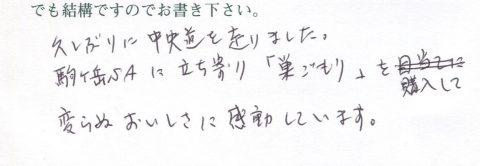 でも結構ですのでお書き下さい。
久しぶりに中央道を走りました。
駒ヶ岳SAに立ち寄り「巣ごもり」を目当てに
購入して
変らぬおいしさに感動しています。